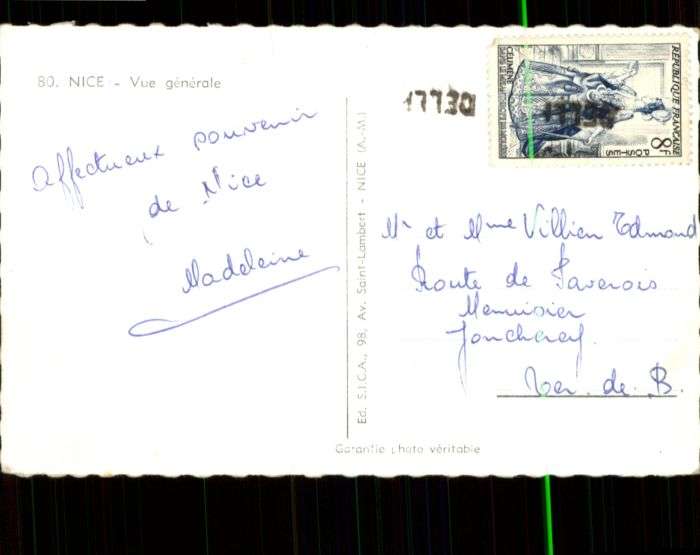 80. NICE - Vue générale
Affectueux souvenir
de Nice
Madeleine
Ed. S.I.C.A., 98, Av. Saint-Lambert - NICE (A.-M.)
17730
REPUBLIQUE FRANCAISE
8F
POSTES
CELIMENE
17730
Mr et Mme Villien Edmond
Route de Faverois
Menuisier
Joncherey
Ter. de B.
Garantie photo véritable